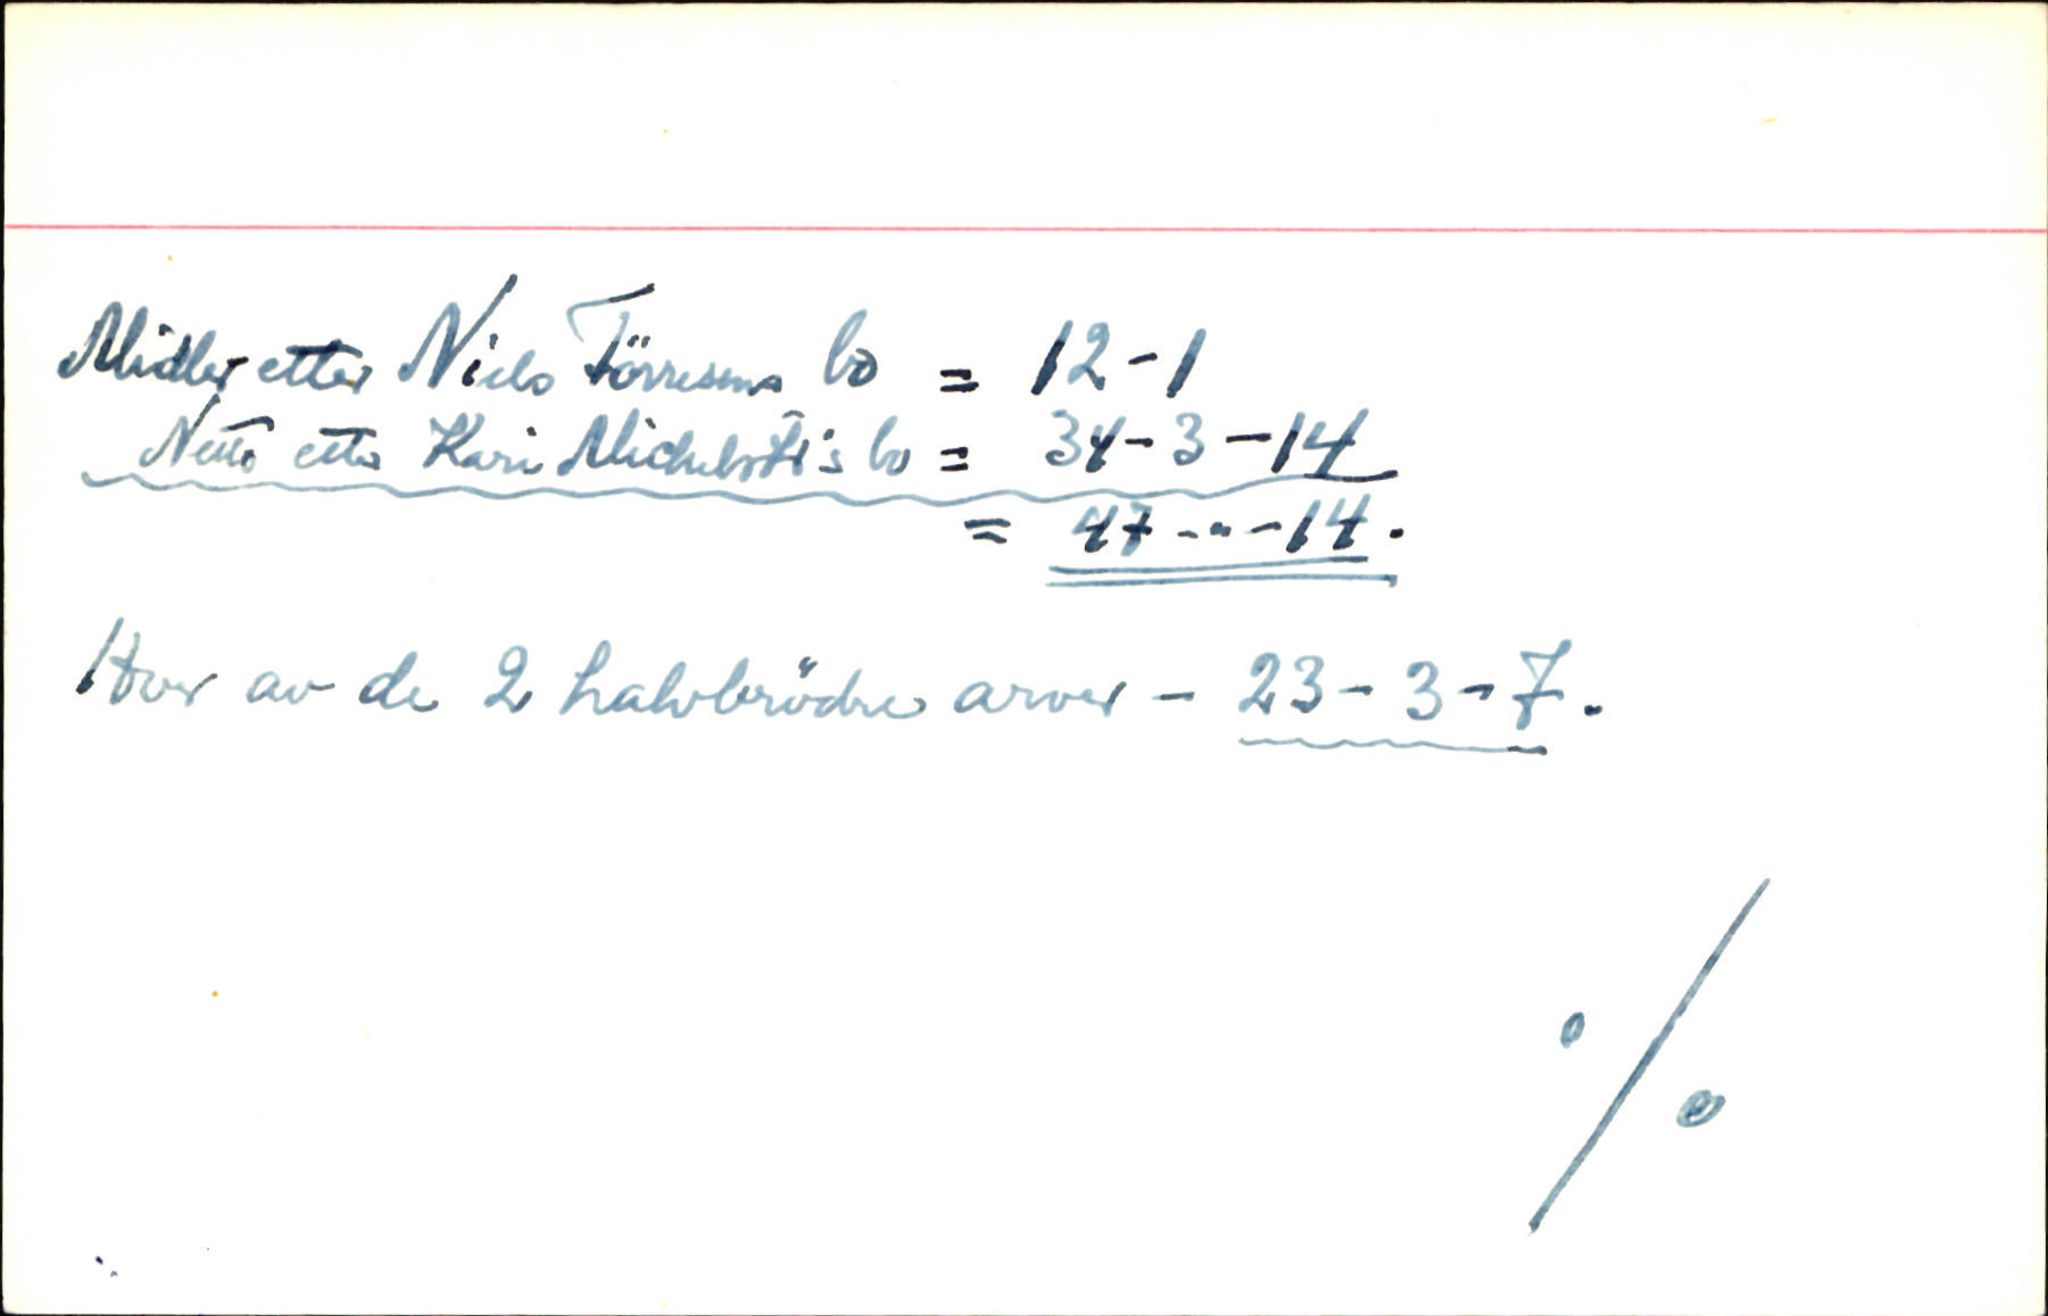 Midler etter Niels Törresens bo = 12-1
Netto etter Kari Michelsdtr's bo = 34-3-14
= 47-"-14.
Hver av de 2 halvbrödre arver - 23-3-7.
%